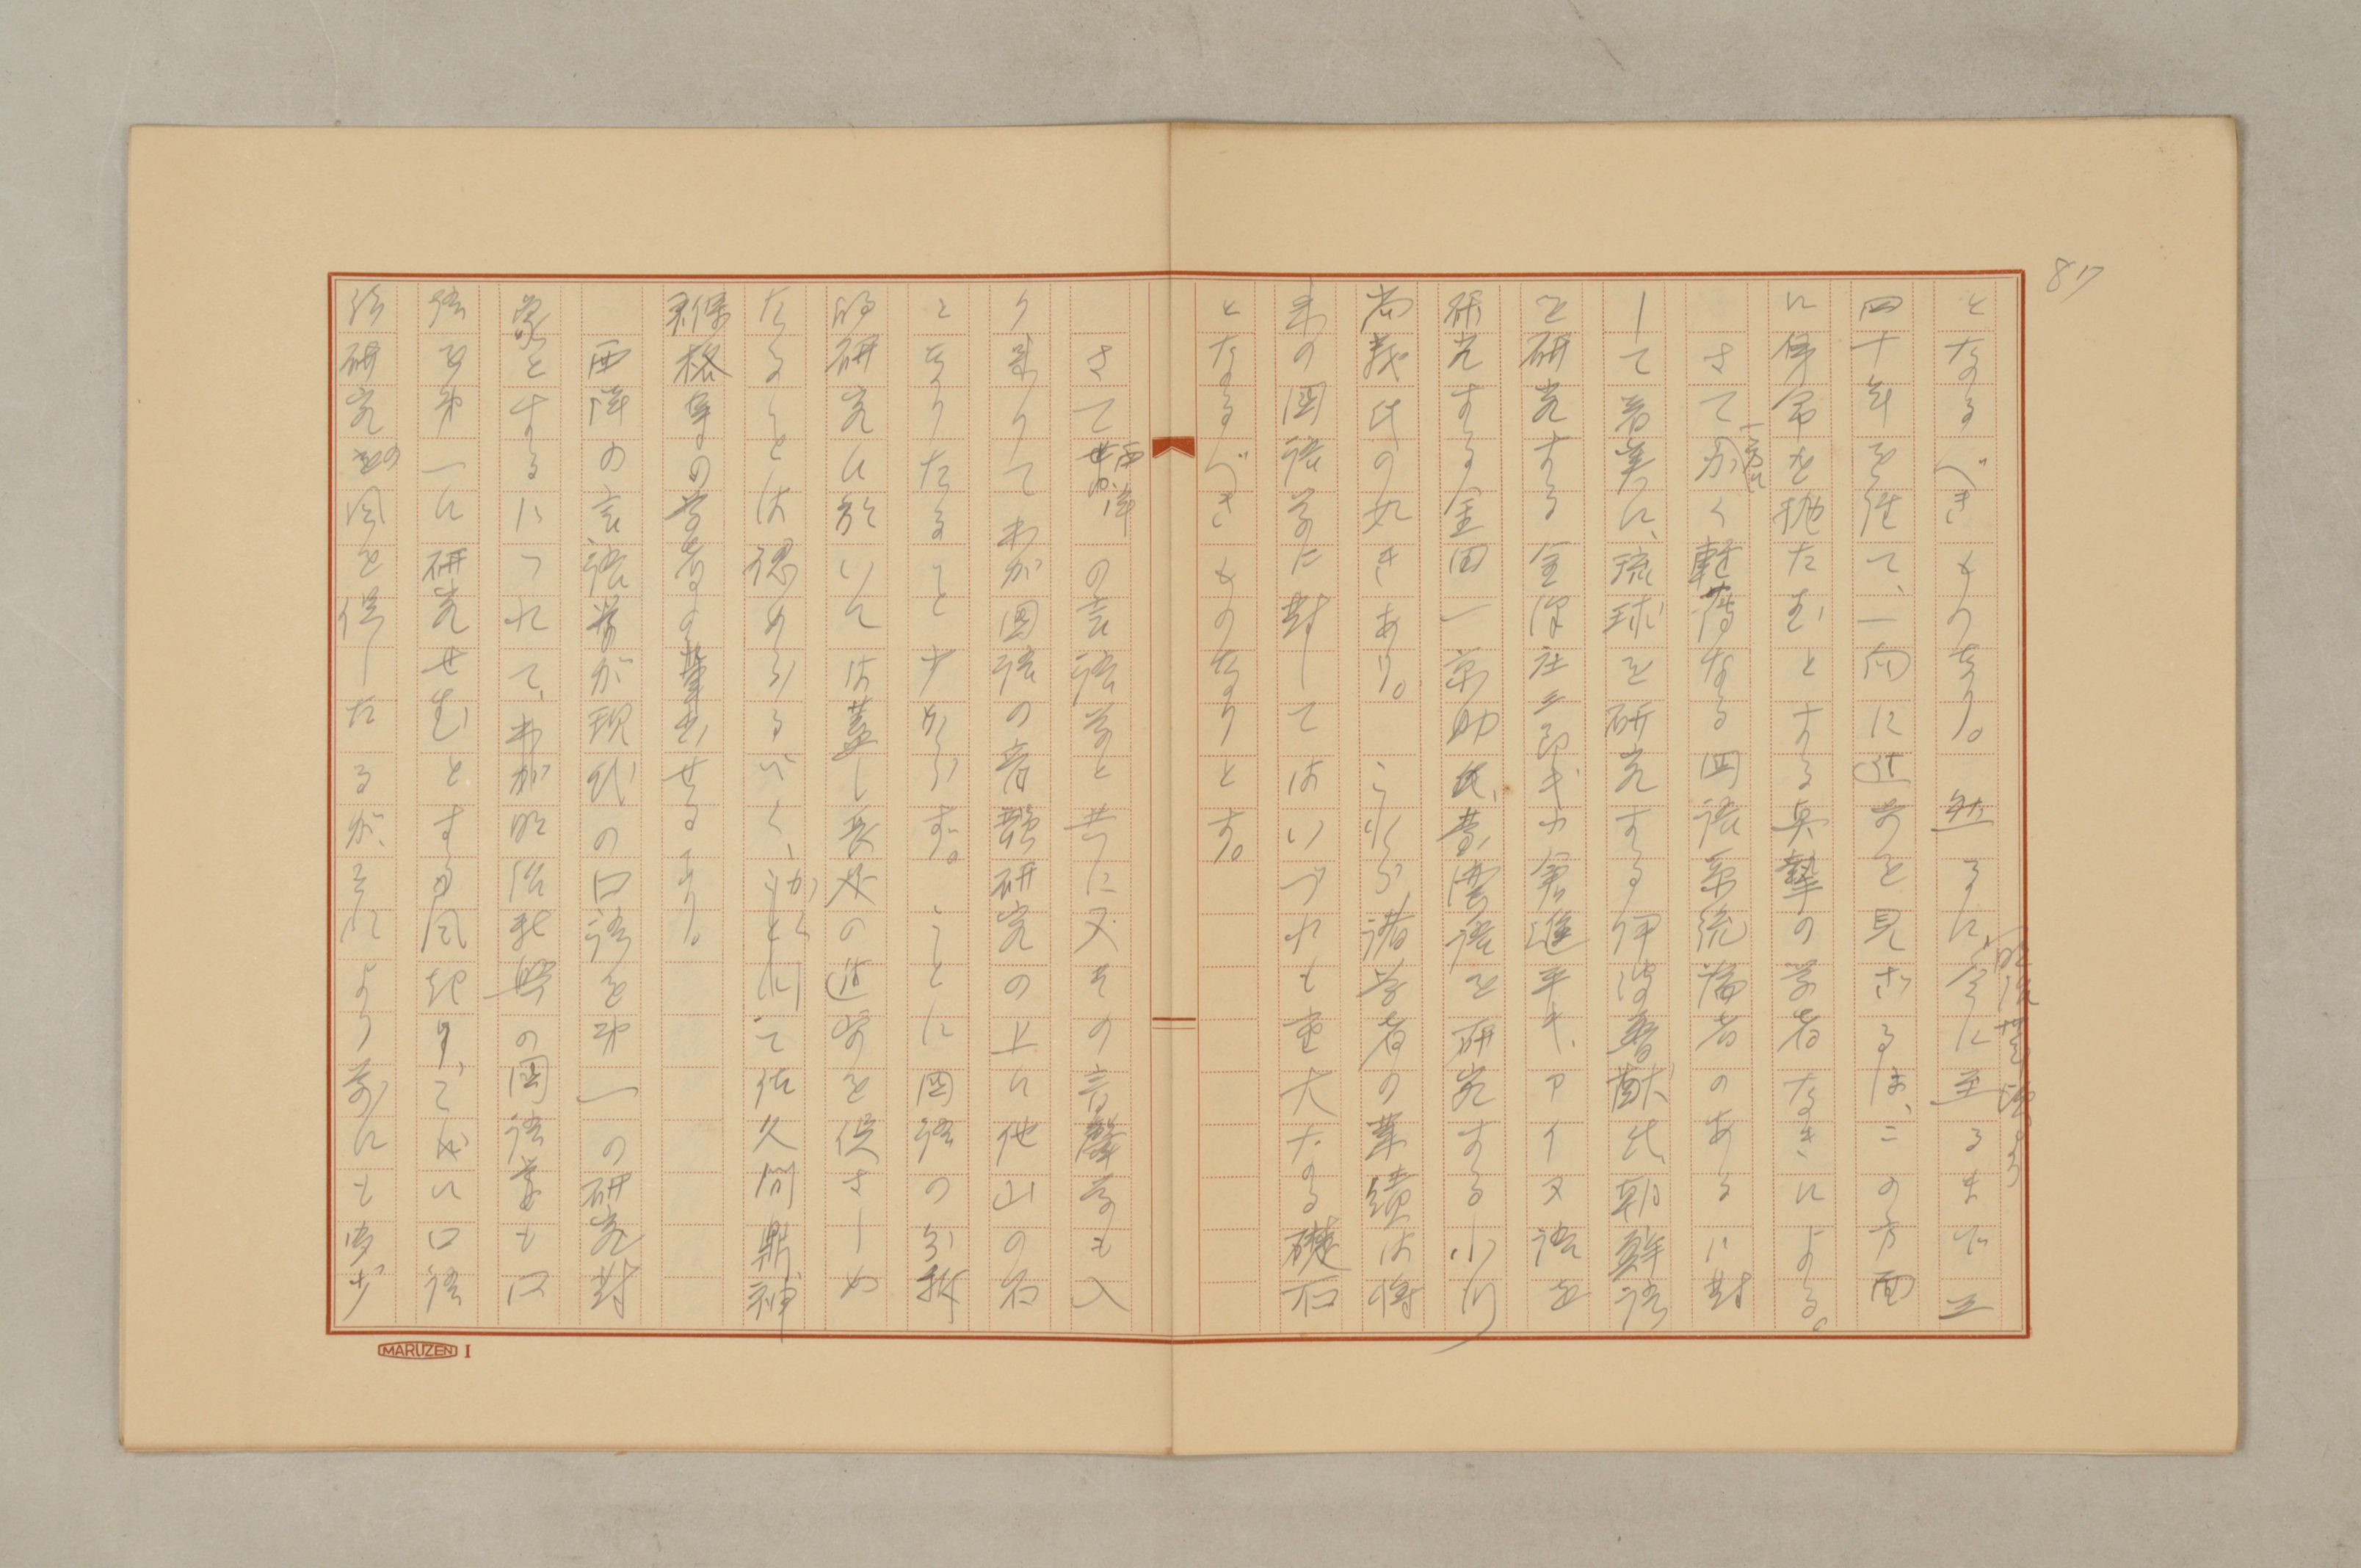 87
となるべきものなり。然るに、今に至るまで三
明治廿年頃より
四十年を経て、一向に進歩を見ざるは、この方面
に身命を抛たむとする真摯の学者なきによる。
さてかく軽薄なる国語系統論者のあるに対
一方に
して着実に、琉球を研究する伊波普猷氏、朝鮮語
を研究する金澤庄三郎氏小倉進平氏、アイヌ語を
研究する金田一京助氏、蒙語を研究する小川
尚義氏の如きあり。これら諸学者の業績は将
来の国語学に対してはいづれも重大なる礎石
となるべきものなりとす。
さて西洋の言語学と共に又その音声学も入
り来りてわが国語の音韻研究の上に他山の石
となりたること少からず。ことに国語の分析
的研究に於いては蓋し長足の進歩を促さしめ
たることは認めらるべく、かくて佐久間鼎神
保格等の学者の輩出せるあり。
西洋の言語学が現代の口語を第一の研究対
象とするにつれて、わが明治新興の国語学も口
語を第一に研究せむとする風起り、ために口語
法研究の風を促したるが、それより前にも多少
MARUZEN I